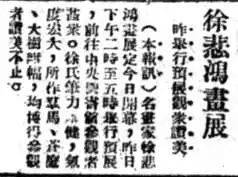 徐悲鴻畫展
昨舉行預展觀衆讚美
（本報訊）名畫家徐悲
鴻畫展定今日開幕，昨日
下午二時至五時舉行預展
，前往中央圖書館參觀者
甚衆。徐氏筆力健，氣
度宏大，所作駿馬、蒼鷹
、大樹等幅，均博得參觀
者讚美不止。